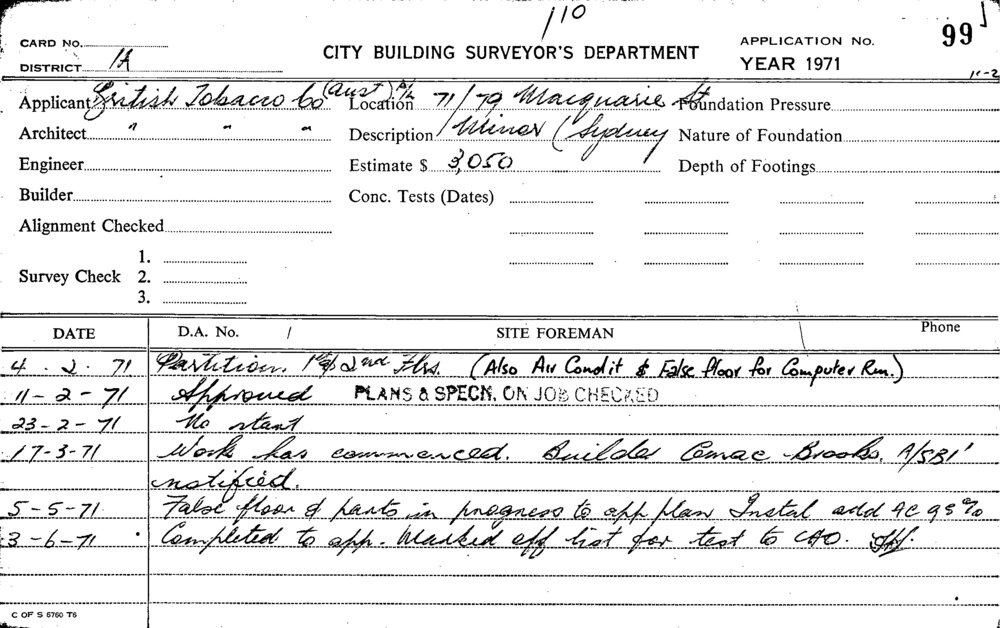 110
CARD No. CITY BUILDING SURVEYOR'S DEPARTMENT APPLICATION No. 99
DISTRICT 1A YEAR 1971
Applicant British Tobacco Co (Aust) P/L Location 71/79 Macquarie St Foundation Pressure
Architect " " " Description Minor (Sydney Nature of Foundation
Engineer Estimate $ 3,050 Depth of Footings
Builder Conc. Tests (Dates)
Alignment Checked
1.
Survey Check 2.
3.
DATE D.A. No. / SITE FOREMAN Phone
4 . 2 . 71 Partition. 1st & 2nd Flrs. (Also Air Condit & False floor for Computer Rm.)
11-2-71 Approved PLANS & SPECN. ON JOB CHECKED
23-2-71 No start
17-3-71 Work has commenced. Builder Comac-Brooks.
notified.
5-5-71 False floor & parts in progress to app plan Instal add AC 95%
3-6-71 Completed to app. Marked off list for test to
C OF S 6760 T6